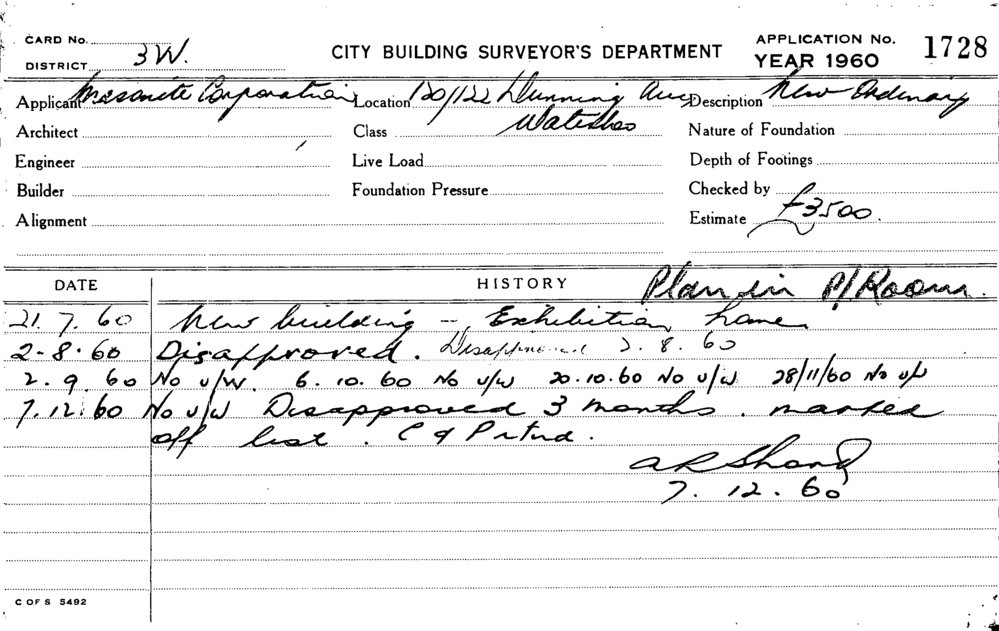 CARD No. CITY BUILDING SURVEYOR'S DEPARTMENT APPLICATION No. 1728
DISTRICT 3W. YEAR 1960
Applicant Masonite Corporation Location 120/122 Dunning Ave Description New Ordinary
Architect Class Waterloo Nature of Foundation
Engineer Live Load Depth of Footings
Builder Foundation Pressure Checked by
Alignment Estimate £3500.
DATE HISTORY Plan in P/Room.
21.7.60 New building - Exhibition home
2-8-60 Disapproved. Disapproved 2.8.60
2.9.60 No u/w. 6.10.60 No u/w 20.10.60 No u/w 28/11/60 No u/w
7.12.60 No u/w Disapproved 3 months. marked
off list. C of P rtnd.
A R Shand
7.12.60
C OF S 5492